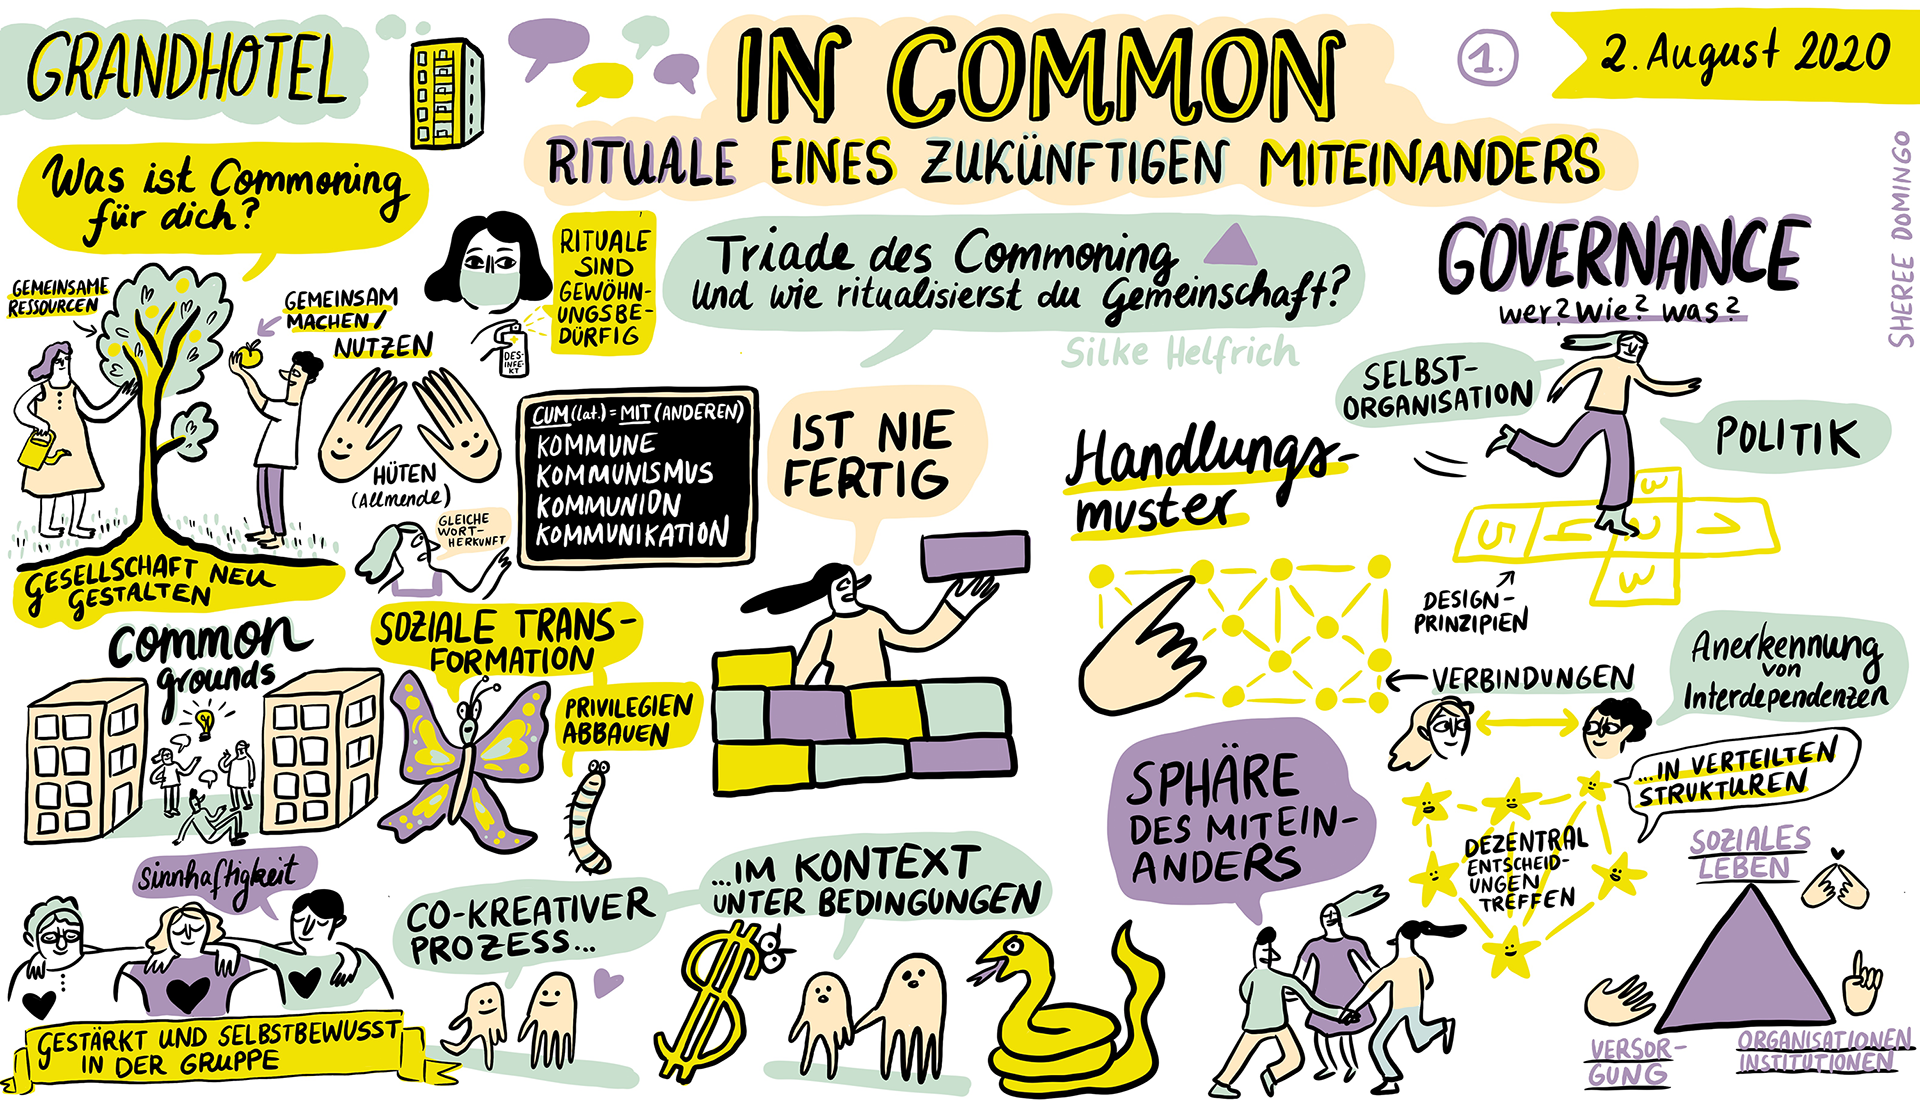 GRANDHOTEL
IN COMMON
RITUALE EINES ZUKÜNFTIGEN MITEINANDERS
1.
2. August 2020
SHEREE DOMINGO
Was ist Commoning
für dich?
GEMEINSAME
RESSOURCEN
GEMEINSAM
MACHEN/
NUTZEN
HÜTEN
(Allmende)
GESELLSCHAFT NEU
GESTALTEN
RITUALE
SIND
GEWÖHN-
UNGSBE-
DÜRFIG
DES-
INFE-
KT
GLEICHE
WORT-
HERKUNFT
CUM (lat.) = MIT (ANDEREN)
KOMMUNE
KOMMUNISMUS
KOMMUNION
KOMMUNIKATION
Triade des Commoning
Und wie ritualisierst du Gemeinschaft?
Silke Helfrich
IST NIE
FERTIG
common
grounds
SOZIALE TRANS-
FORMATION
PRIVILEGIEN
ABBAUEN
Sinnhaftigkeit
GESTÄRKT UND SELBSTBEWUSST
IN DER GRUPPE
CO-KREATIVER
PROZESS...
...IM KONTEXT
UNTER BEDINGUNGEN
GOVERNANCE
wer? wie? was?
SELBST-
ORGANISATION
POLITIK
5 4 3 2 3 1
DESIGN-
PRINZIPIEN
Handlungs-
muster
VERBINDUNGEN
Anerkennung
von
Interdependenzen
...IN VERTEILTEN
STRUKTUREN
DEZENTRAL
ENTSCHEID-
UNGEN
TREFFEN
SPHÄRE
DES MITEIN-
ANDERS
SOZIALES
LEBEN
VERSOR-
GUNG
ORGANISATIONEN
INSTITUTIONEN